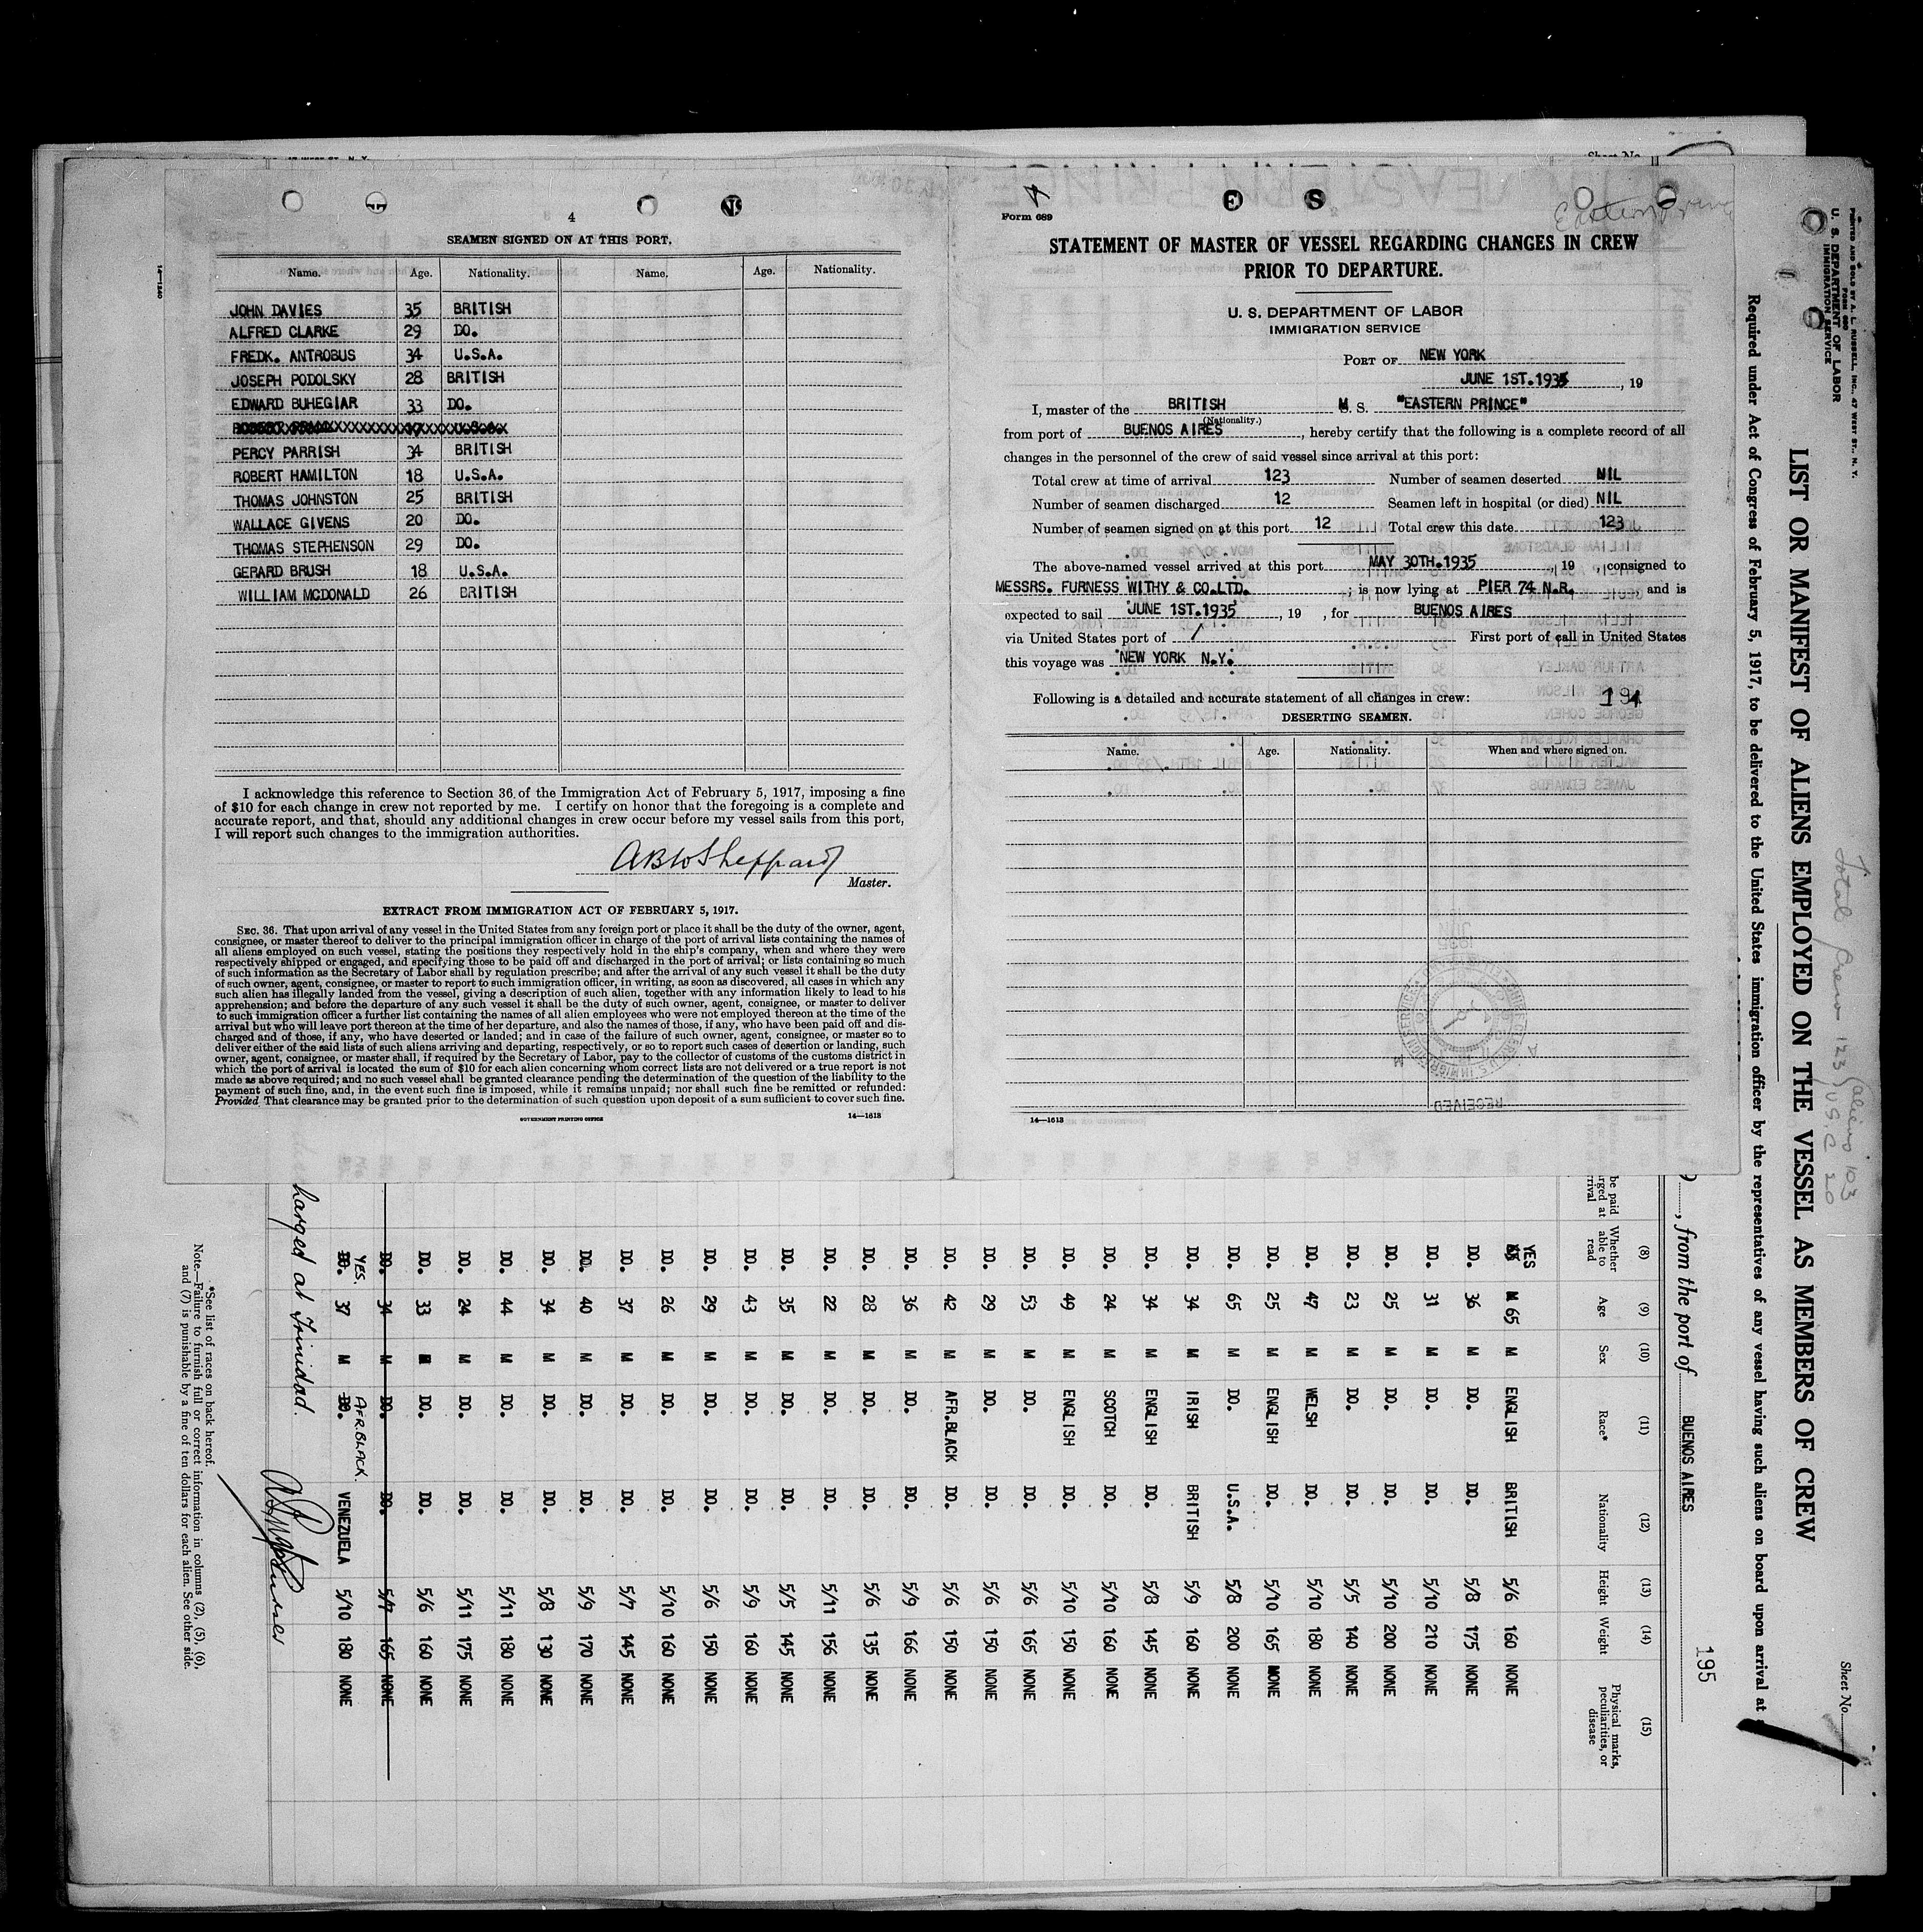 4
SEAMEN SIGNED ON AT THIS PORT.
Name. Age. Nationality. Name. Age. Nationality.
JOHN DAVIES 35 BRITISH
ALFRED CLARKE 29 DO.
FREDK. ANTROBUS 34 U.S.A.
JOSEPH PODOLSKY 28 BRITISH
EDWARD BUHEGIAR 33 DO.
PERCY PARRISH 34 BRITISH
ROBERT HAMILTON 18 U.S.A.
THOMAS JOHNSTON 25 BRITISH
WALLACE GIVENS 20 DO.
THOMAS STEPHENSON 29 DO.
GERARD BRUSH 18 U.S.A.
WILLIAM MCDONALD 26 BRITISH
I acknowledge this reference to Section 36 of the Immigration Act of February 5, 1917, imposing a fine
of $10 for each change in crew not reported by me. I certify on honor that the foregoing is a complete and
accurate report, and that, should any additional changes in crew occur before my vessel sails from this port,
I will report such changes to the immigration authorities.
ABWSheppard
Master.
EXTRACT FROM IMMIGRATION ACT OF FEBRUARY 5, 1917.
SEC. 36. That upon arrival of any vessel in the United States from any foreign port or place it shall be the duty of the owner, agent,
consignee, or master thereof to deliver to the principal immigration officer in charge of the port of arrival lists containing the names of
all aliens employed on such vessel, stating the positions they respectively hold in the ship's company, when and where they were
respectively shipped or engaged, and specifying those to be paid off and discharged in the port of arrival; or lists containing so much
of such information as the Secretary of Labor shall by regulation prescribe; and after the arrival of any such vessel it shall be the duty
of such owner, agent, consignee, or master to report to such immigration officer, in writing, as soon as discovered, all cases in which any
such alien has illegally landed from the vessel, giving a description of such alien, together with any information likely to lead to his
apprehension; and before the departure of any such vessel it shall be the duty of such owner, agent, consignee, or master to deliver
to such immigration officer a further list containing the names of all alien employees who were not employed thereon at the time of the
arrival but who will leave port thereon at the time of her departure, and also the names of those, if any, who have been paid off and dis-
charged and of those, if any, who have deserted or landed; and in case of the failure of such owner, agent, consignee, or master so to
deliver either of the said lists of such aliens arriving and departing, respectively, or so to report such cases of desertion or landing, such
owner, agent, consignee, or master shall, if required by the Secretary of Labor, pay to the collector of customs of the customs district in
which the port of arrival is located the sum of $10 for each alien concerning whom correct lists are not delivered or a true report is not
made as above required; and no such vessel shall be granted clearance pending the determination of the question of the liability to the
payment of such fine, and, in the event such fine is imposed, while it remains unpaid; nor shall such fine be remitted or refunded:
Provided That clearance may be granted prior to the determination of such question upon deposit of a sum sufficient to cover such fine.
GOVERNMENT PRINTING OFFICE 14—1613
Form 689
E S
Eastern Prince
STATEMENT OF MASTER OF VESSEL REGARDING CHANGES IN CREW
PRIOR TO DEPARTURE.
U. S. DEPARTMENT OF LABOR
IMMIGRATION SERVICE
PORT OF NEW YORK
JUNE 1ST.1935, 19
I, master of the BRITISH M S. "EASTERN PRINCE"
(Nationality.)
from port of BUENOS AIRES, hereby certify that the following is a complete record of all
changes in the personnel of the crew of said vessel since arrival at this port:
Total crew at time of arrival 123 Number of seamen deserted NIL
Number of seamen discharged 12 Seamen left in hospital (or died) NIL
Number of seamen signed on at this port 12 Total crew this date 123
The above-named vessel arrived at this port MAY 30TH.1935, 19 , consigned to
MESSRS. FURNESS WITHY & CO.LTD. ; is now lying at PIER 74 N.R. , and is
expected to sail JUNE 1ST.1935, 19 , for BUENOS AIRES
via United States port of / First port of call in United States
this voyage was NEW YORK N.Y.
Following is a detailed and accurate statement of all changes in crew: 194
DESERTING SEAMEN.
Name. Age. Nationality. When and where signed on.
RECEIVED
14—1613
Sheet No.
PRINTED AND SOLD BY A. L. RUSSELL, INC., 47 WEST ST., N. Y.
FORM 680
U. S. DEPARTMENT OF LABOR
IMMIGRATION SERVICE
Total Crew 123 Aliens 103
U.S.C 20
LIST OR MANIFEST OF ALIENS EMPLOYED ON THE VESSEL AS MEMBERS OF CREW
Required under Act of Congress of February 5, 1917, to be delivered to the United States immigration officer by the representatives of any vessel having such aliens on board upon arrival at
, from the port of BUENOS AIRES 195
(8) (9) (10) (11) (12) (13) (14) (15)
Whether able to read Age Sex Race* Nationality Height Weight Physical marks, peculiarities, or disease
YES 65 M ENGLISH BRITISH 5/6 160 NONE
DO. 36 M DO. DO. 5/8 175 NONE
DO. 31 M DO. DO. 5/10 210 NONE
DO. 25 M DO. DO. 5/10 200 NONE
DO. 23 M DO. DO. 5/5 140 NONE
DO. 47 M WELSH DO. 5/10 180 NONE
DO. 25 M ENGLISH DO. 5/10 165 NONE
DO. 65 M DO. U.S.A. 5/8 200 NONE
DO. 34 M IRISH BRITISH 5/9 160 NONE
DO. 34 M ENGLISH DO. 5/8 145 NONE
DO. 24 M SCOTCH DO. 5/10 160 NONE
DO. 49 M ENGLISH DO. 5/10 150 NONE
DO. 53 M DO. DO. 5/6 165 NONE
DO. 29 M DO. DO. 5/6 150 NONE
DO. 42 M AFR.BLACK DO. 5/6 150 NONE
DO. 36 M DO. DO. 5/9 166 NONE
DO. 28 M DO. DO. 5/6 135 NONE
DO. 22 M DO. DO. 5/11 156 NONE
DO. 35 M DO. DO. 5/5 145 NONE
DO. 43 M DO. DO. 5/9 160 NONE
DO. 29 M DO. DO. 5/6 150 NONE
DO. 26 M DO. DO. 5/10 160 NONE
DO. 37 M DO. DO. 5/7 145 NONE
DO. 40 M DO. DO. 5/9 170 NONE
DO. 34 M DO. DO. 5/8 130 NONE
DO. 44 M DO. DO. 5/11 180 NONE
DO. 24 M DO. DO. 5/11 175 NONE
DO. 33 M DO. DO. 5/6 160 NONE
DO. 34 M DO. DO. 5/7 165 NONE
YES. 37 M AFR.BLACK. VENEZUELA 5/10 180 NONE
harged at Trinidad.
*See list of races on back hereof.
Note.—Failure to furnish full or correct information in columns (2), (5), (6),
and (7) is punishable by a fine of ten dollars for each alien. See other side.